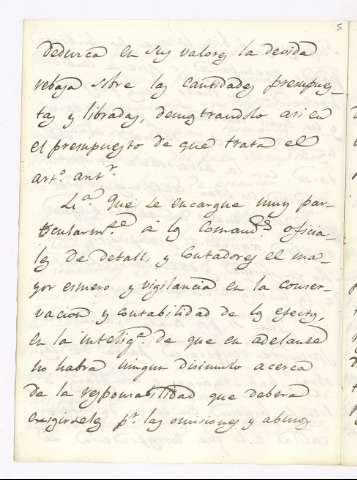 5
deduzca en sus valores la devida
rebaja sobre las cantidades presupues-
tas y libradas, demostrandolo asi en
el presupuesto de que trata el
artº. antr.
Que se encargue muy par-
ticularmte. á los Comands. oficia-
les de detall, y Contadores el ma-
yor esmero y vigilancia en la conser-
vacion y contabilidad de los efectos,
en la inteliga. de que en adelante
no habrá ningun disimulo acerca
de la responsabilidad que deberá
exigirseles pr. las omisiones y abusos